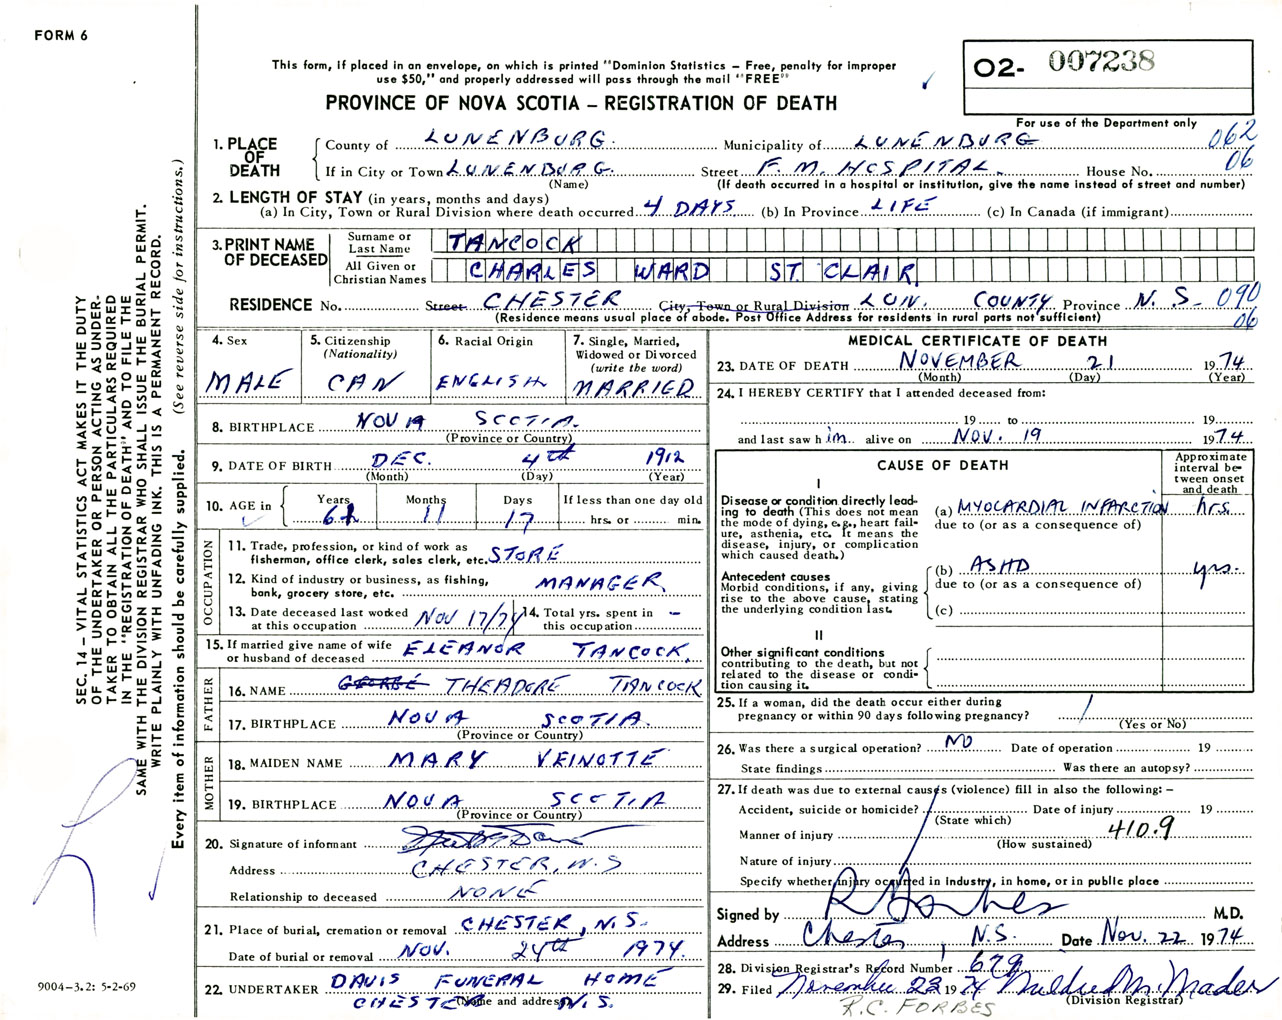 FORM 6
This form, if placed in an envelope, on which is printed "Dominion Statistics – Free, penalty for improper
use $50," and properly addressed will pass through the mail "FREE"
O2- 007238
PROVINCE OF NOVA SCOTIA – REGISTRATION OF DEATH
For use of the Department only
062
06
1. PLACE OF DEATH
County of LUNENBURG. Municipality of LUNENBURG
If in City or Town LUNENBURG. Street F. M. HOSPITAL. House No.
(Name) (If death occurred in a hospital or institution, give the name instead of street and number)
2. LENGTH OF STAY (in years, months and days)
(a) In City, Town or Rural Division where death occurred 4 DAYS (b) In Province LIFE (c) In Canada (if immigrant)
3. PRINT NAME OF DECEASED
Surname or Last Name TANCOCK
All Given or Christian Names CHARLES WARD ST. CLAIR
RESIDENCE No. Street CHESTER City, Town or Rural Division LUN. COUNTY Province N. S. 090
06
(Residence means usual place of abode. Post Office Address for residents in rural parts not sufficient)
4. Sex MALE
5. Citizenship (Nationality) CAN
6. Racial Origin ENGLISH
7. Single, Married, Widowed or Divorced (write the word) MARRIED
8. BIRTHPLACE NOVA SCOTIA.
(Province or Country)
9. DATE OF BIRTH DEC. 4th 1912
(Month) (Day) (Year)
10. AGE in Years 61 Months 11 Days 17 If less than one day old
hrs. or min.
OCCUPATION
11. Trade, profession, or kind of work as
fisherman, office clerk, sales clerk, etc. STORE
12. Kind of industry or business, as fishing,
bank, grocery store, etc. MANAGER
13. Date deceased last worked at this occupation NOV 17/74 14. Total yrs. spent in this occupation –
15. If married give name of wife or husband of deceased ELEANOR TANCOCK.
FATHER
16. NAME GEORGE THEADORE TANCOCK
17. BIRTHPLACE NOVA SCOTIA.
(Province or Country)
MOTHER
18. MAIDEN NAME MARY VEINOTTE
19. BIRTHPLACE NOVA SCOTIA
(Province or Country)
20. Signature of informant
Address CHESTER, N.S
Relationship to deceased NONE
21. Place of burial, cremation or removal CHESTER, N.S.
Date of burial or removal NOV. 24th 1974.
22. UNDERTAKER DAVIS FUNERAL HOME
(Name and address) CHESTER N.S.
MEDICAL CERTIFICATE OF DEATH
23. DATE OF DEATH NOVEMBER 21 1974
(Month) (Day) (Year)
24. I HEREBY CERTIFY that I attended deceased from:
19 to 19
and last saw him alive on NOV. 19 1974
CAUSE OF DEATH
Approximate interval between onset and death
I
Disease or condition directly leading to death (This does not
the mode of dying, e.g., heart failure, asthenia, etc. It means the
disease, injury, or complication
which caused death.)
(a) MYOCARDIAL INFARCTION hrs.
due to (or as a consequence of)
Antecedent causes
Morbid conditions, if any, giving
rise to the above cause, stating
the underlying condition last.
(b) ASHD yrs.
due to (or as a consequence of)
(c)
II
Other significant conditions
contributing to the death, but not
related to the disease or condition causing it.
25. If a woman, did the death occur either during
pregnancy or within 90 days following pregnancy?
(Yes or No)
26. Was there a surgical operation? NO Date of operation 19
State findings Was there an autopsy?
27. If death was due to external causes (violence) fill in also the following: –
Accident, suicide or homicide? Date of injury 19
(State which)
Manner of injury 410.9
(How sustained)
Nature of injury
Specify whether injury occurred in industry, in home, or in public place
Signed by R Forbes M.D.
Address Chester, N.S. Date Nov. 22 1974
28. Division Registrar's Record Number 679
29. Filed November 23 1974 Mildred M. Mader
(Division Registrar)
R.C. FORBES
SEC. 14 – VITAL STATISTICS ACT MAKES IT THE DUTY
OF THE UNDERTAKER OR PERSON ACTING AS UNDERTAKER TO OBTAIN ALL THE PARTICULARS REQUIRED
IN THE "REGISTRATION OF DEATH" AND TO FILE THE
SAME WITH THE DIVISION REGISTRAR WHO SHALL ISSUE THE BURIAL PERMIT.
WRITE PLAINLY WITH UNFADING INK. THIS IS A PERMANENT RECORD.
Every item of information should be carefully supplied. (See reverse side for instructions.)
9004-3.2: 5-2-69